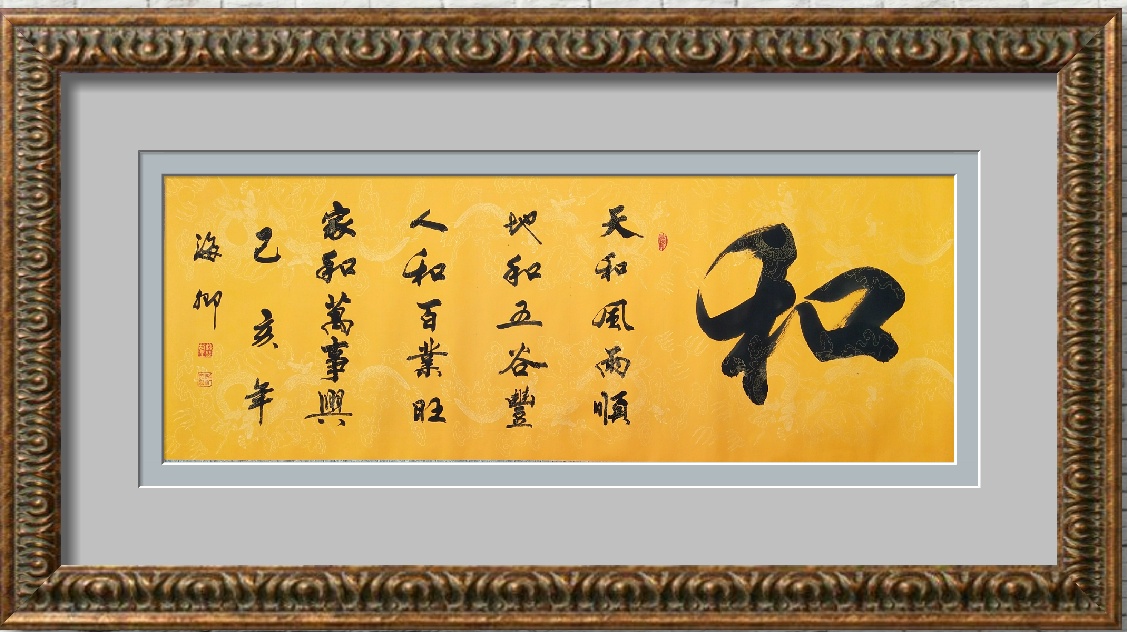 和
天和風雨順
地和五谷豐
人和百業旺
家和萬事興
己亥年
海卿